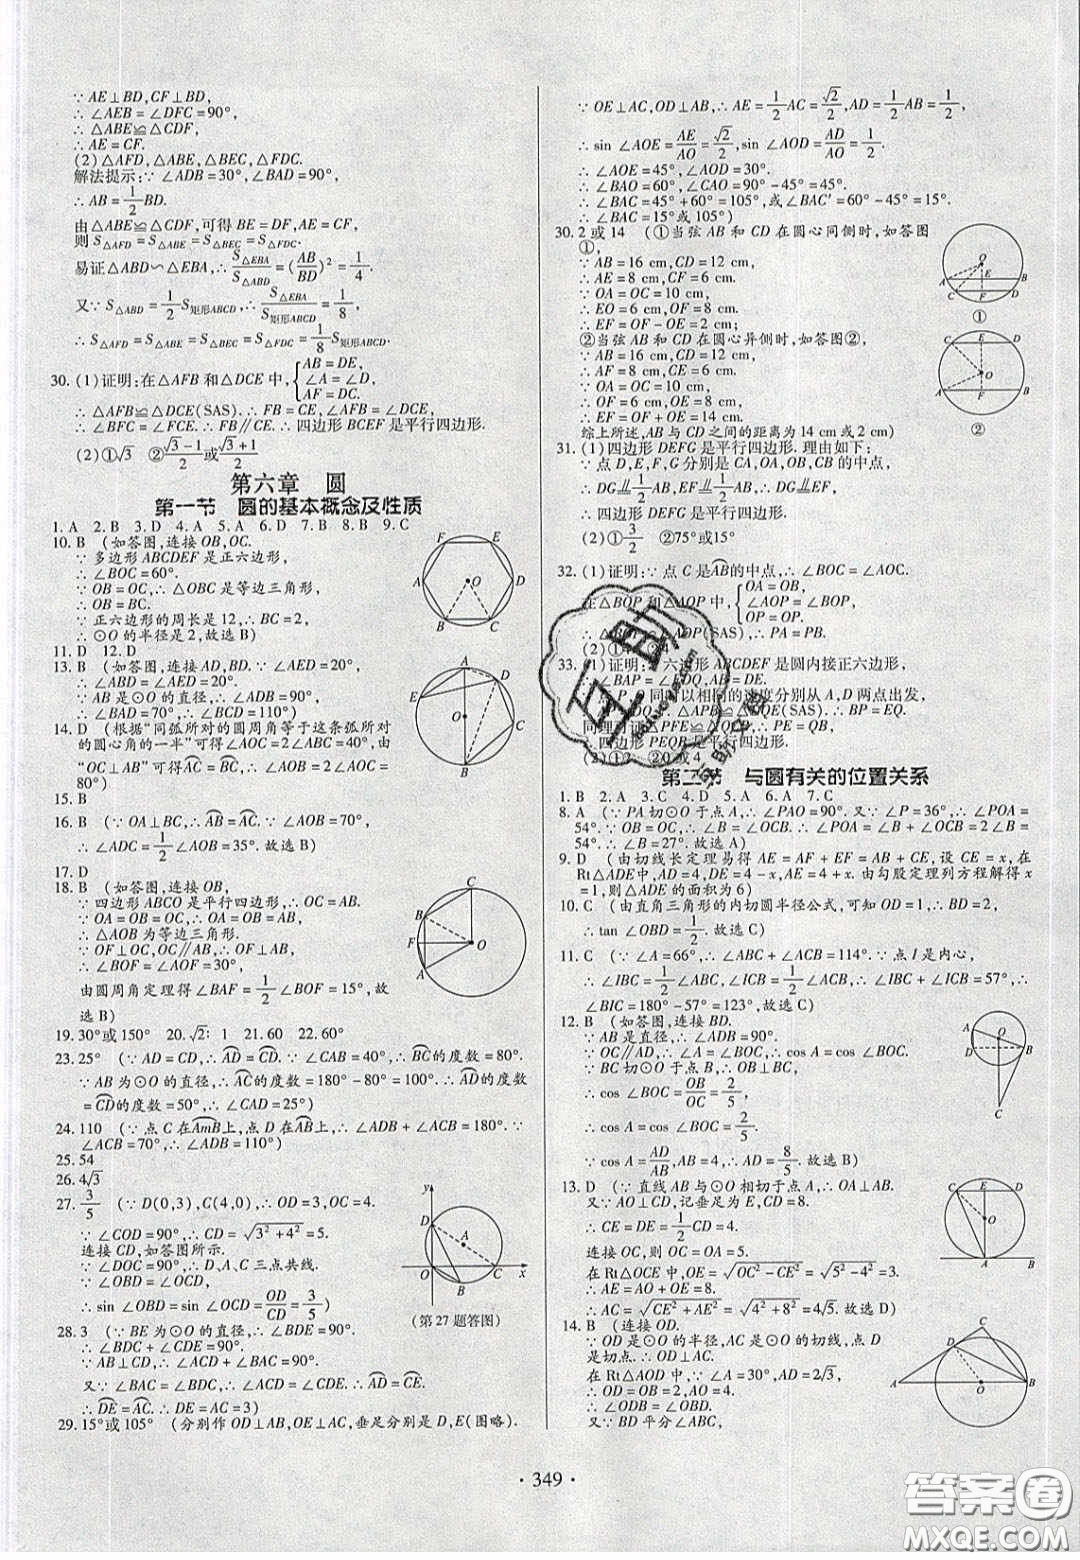 ∵ AE⊥BD,CF⊥BD,
∴ ∠AEB=∠DFC=90°,
∴ △ABE≌△CDF,
∴ AE=CF.
(2)△AFD,△ABE,△BEC,△FDC.
解法提示:∵ ∠ADB=30°,∠BAD=90°,
∴ AB=1/2BD.
由△ABE≌△CDF,可得 BE=DF,AE=CF,
则 S△AFD=S△ABE=S△BEC=S△FDC.
易证△ABD∽△EBA,∴ S△EBA/S△ABD=(AB/BD)²=1/4.
又∵ S△ABD=1/2S矩形ABCD,∴ S△EBA/S矩形ABCD=1/8,
∴ S△AFD=S△ABE=S△BEC=S△FDC=1/8S矩形ABCD.
30.(1)证明:在△AFB 和△DCE 中,{AB=DE, ∠A=∠D, AF=DC.
∴ △AFB≌△DCE(SAS).∴ FB=CE,∠AFB=∠DCE,
∴ ∠BFC=∠FCE.∴ FB∥CE.∴ 四边形 BCEF 是平行四边形.
(2)①√3 ②(√3-1)/2或(√3+1)/2
第六章 圆
第一节 圆的基本概念及性质
1. A 2. B 3. D 4. A 5. A 6. D 7. B 8. B 9. C
10. B (如答图,连接 OB,OC.
∵ 多边形 ABCDEF 是正六边形,
∴ ∠BOC=60°.
∵ OB=OC,∴ △OBC 是等边三角形,
∴ OB=BC.
∵ 正六边形的周长是 12,∴ BC=2,
∴ ⊙O 的半径是 2,故选 B)
11. D 12. D
13. B (如答图,连接 AD,BD.∵ ∠AED=20°,
∴ ∠ABD=∠AED=20°.
∵ AB 是⊙O 的直径,∴ ∠ADB=90°,
∴ ∠BAD=70°,∴ ∠BCD=110°)
14. D (根据“同弧所对的圆周角等于这条弧所对
的圆心角的一半”可得∠AOC=2∠ADC=40°,由
“OC⊥AB”可得AC=BC,∴ ∠AOB=2∠AOC=
80°)
15. B
16. B (∵ OA⊥BC,∴ AB=AC.∵ ∠AOB=70°,
∴ ∠ADC=1/2∠AOB=35°.故选 B)
17. D
18. B (如答图,连接 OB,
∵ 四边形 ABCO 是平行四边形,∴ OC=AB.
∵ OA=OB=OC,∴ OA=OB=AB,
∴ △AOB 为等边三角形.
∵ OF⊥OC,OC∥AB,∴ OF⊥AB,
∴ ∠BOF=∠AOF=30°,
由圆周角定理得∠BAF=1/2∠BOF=15°,故
选 B)
19. 30°或 150° 20.√2∶1 21. 60 22. 60°
23. 25° (∵ AD=CD,∴ AD=CD.∵ ∠CAB=40°,∴ BC的度数=80°.
∵ AB 为⊙O 的直径,∴ AC的度数=180°-80°=100°.∴ AD的度数
=CD的度数=50°,∴ ∠CAD=25°)
24. 110 (∵ 点 C 在AmB上,点 D 在AB上,∴ ∠ADB+∠ACB=180°.∵
∠ACB=70°,∴ ∠ADB=110°)
25. 54
26. 4√3
27. 3/5 (∵ D(0,3),C(4,0),∴ OD=3,OC=4.
∵ ∠COD=90°,∴ CD=√(3²+4²)=5.
连接 CD,如答图所示.
∵ ∠DOC=90°,∴ D、A、C 三点共线.
∵ ∠OBD=∠OCD,
∴ sin ∠OBD=sin ∠OCD=OD/CD=3/5)
(第 27 题答图)
28. 3 (∵ BE 为⊙O 的直径,∴ ∠BDE=90°.
∴ ∠BDC+∠CDE=90°.
∵ AE⊥BC,∴ ∠ACD+∠BAC=90°.
又∵ ∠BAC=∠BDC,∴ ∠ACD=∠CDE,∴ AD=CE.
∴ DE=AC,∴ DE=AC=3)
29. 15°或 105° (分别作 OD⊥AB,OE⊥AC,垂足分别是 D,E(图略).
∵ OE⊥AC,OD⊥AB,∴ AE=1/2AC=√2/2,AD=1/2AB=1/2,
∴ sin ∠AOE=AE/AO=√2/2,sin ∠AOD=AD/AO=1/2,
∴ ∠AOE=45°,∠AOD=30°.
∴ ∠BAO=60°,∠CAO=90°-45°=45°.
∴ ∠BAC=45°+60°=105°,或∠BAC'=60°-45°=15°.
∴ ∠BAC=15°或 105°)
30. 2 或 14 (①当弦 AB 和 CD 在圆心同侧时,如答图
①,
∵ AB=16 cm,CD=12 cm,
∴ AE=8 cm,CF=6 cm.
∵ OA=OC=10 cm,
∴ EO=6 cm,OF=8 cm.
∴ EF=OF-OE=2 cm;
②当弦 AB 和 CD 在圆心异侧时,如答图②,
∵ AB=16 cm,CD=12 cm,
∴ AF=8 cm,CE=6 cm.
∵ OA=OC=10 cm,
∴ OF=6 cm,OE=8 cm.
∴ EF=OF+OE=14 cm.
综上所述,AB 与 CD 之间的距离为 14 cm 或 2 cm)
①
②
31.(1)四边形 DEFG 是平行四边形.理由如下:
∵ 点 D,E,F,G 分别是 CA,OA,OB,CB 的中点,
∴ DG∥=1/2AB,EF∥=1/2AB,∴ DG∥=EF.
∴ 四边形 DEFG 是平行四边形.
(2)①3/2 ②75°或15°
32.(1)证明:∵ 点 C 是AB的中点,∴ ∠BOC=∠AOC.
在△BOP 和△AOP 中,{OA=OB, ∠AOP=∠BOP, OP=OP.
∴ △BOP≌△AOP(SAS).∴ PA=PB.
33.(1)证明:∵ 六边形 ABCDEF 是圆内接正六边形,
∴ ∠BAP=∠EDQ,AB=DE.
∵ P,Q 同时以相同的速度分别从 A,D 两点出发,
∴ AP=DQ.∴ △APB≌△DQE(SAS).∴ BP=EQ.
同理可证△PFE≌△QCB,∴ PE=QB,
∴ 四边形 PEQB 是平行四边形.
(2)①2 ②0 或 4
第二节 与圆有关的位置关系
1. B 2. A 3. C 4. D 5. A 6. A 7. C
8. A (∵ PA 切⊙O 于点 A,∴ ∠PAO=90°.又∵ ∠P=36°,∴ ∠POA=
54°.∵ OB=OC,∴ ∠B=∠OCB.∴ ∠POA=∠B+∠OCB=2∠B=
54°.∴ ∠B=27°.故选 A)
9. D (由切线长定理易得 AE=AF+EF=AB+CE,设 CE=x,在
Rt△ADE中,AD=4,DE=4-x,AE=4+x.由勾股定理列方程解得 x
=1,则△ADE 的面积为 6)
10. C (由直角三角形的内切圆半径公式,可知 OD=1,∴ BD=2,
∴ tan ∠OBD=1/2.故选 C)
11. C (∵ ∠A=66°,∴ ∠ABC+∠ACB=114°.∵ 点 I 是内心,
∴ ∠IBC=1/2∠ABC,∠ICB=1/2∠ACB,∴ ∠IBC+∠ICB=57°,∴
∠BIC=180°-57°=123°,故选 C)
12. B (如答图,连接 BD.
∵ AB 是直径,∴ ∠ADB=90°.
∵ OC∥AD,∴ ∠A=∠BOC,∴ cos A=cos ∠BOC.
∵ BC 切⊙O 于点 B,∴ OB⊥BC,
∴ cos ∠BOC=OB/OC=2/5,
∴ cos A=cos ∠BOC=2/5.
∵ cos A=AD/AB,AB=4,∴ AD=8/5.故选 B)
13. D (∵ 直线 AB 与⊙O 相切于点 A,∴ OA⊥AB.
又∵ AO⊥CD,记垂足为 E,CD=8,
∴ CE=DE=1/2CD=4.
连接 OC,则 OC=OA=5.
在 Rt△OCE 中,OE=√(OC²-CE²)=√(5²-4²)=3,
∴ AE=AO+OE=8.
∴ AC=√(CE²+AE²)=√(4²+8²)=4√5.故选 D)
14. B (连接 OD.
∵ OD 是⊙O 的半径,AC 是⊙O 的切线,点 D
是切点.∴ OD⊥AC.
在 Rt△AOD 中,∵ ∠A=30°,AD=2√3,
∴ OD=OB=2,AO=4.
∴ ∠ODB=∠OBD.
又∵ BD 平分∠ABC,
· 349 ·
答案圈
MXQE.COM